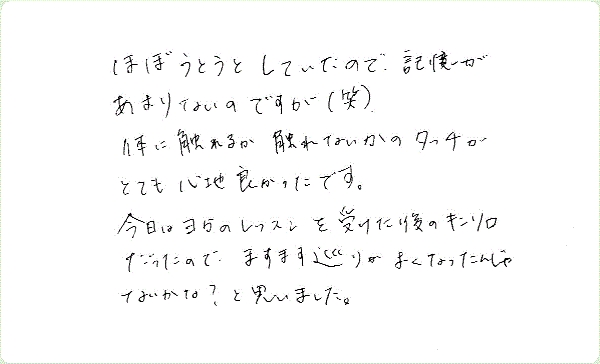 ほぼうとうとしていたので、記憶が
あまりないのですが(笑)
体に触れるか触れないかのタッチが
とても心地良かったです。
今日はヨガのレッスンを受けた後のキンリロ
だったので、ますます巡りがよくなったんじゃ
ないかな?と思いました。